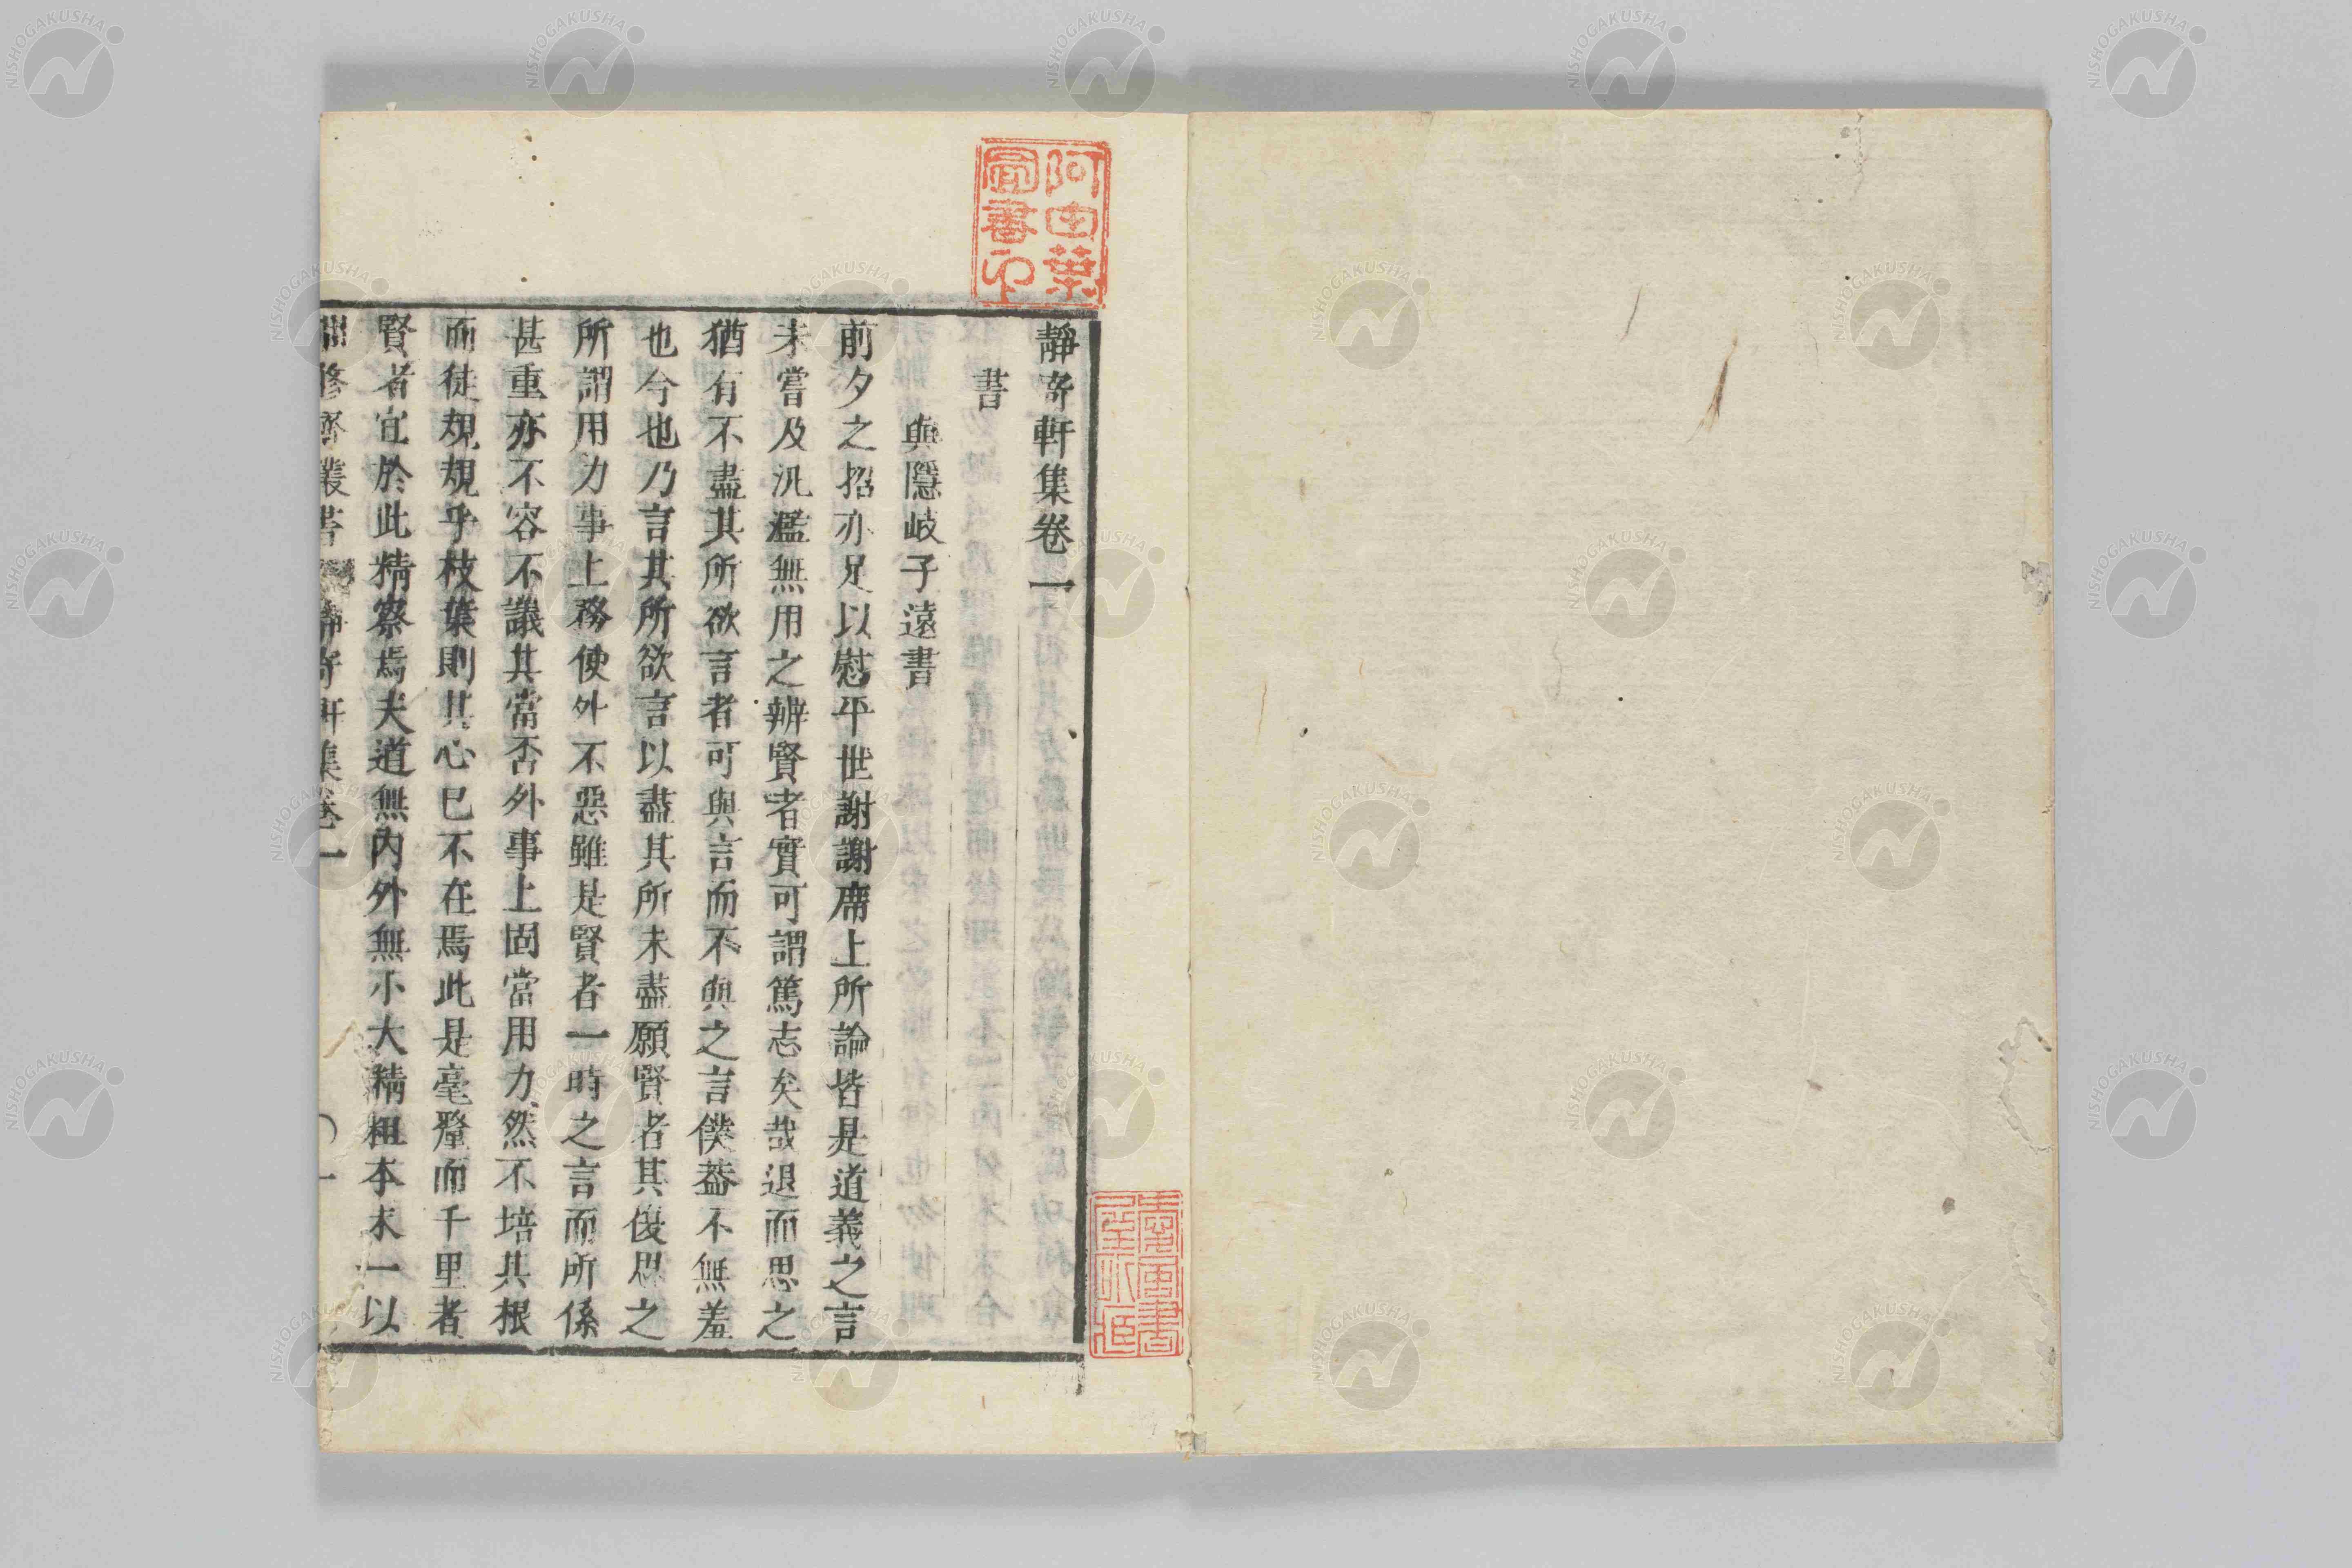 靜寄軒集卷一
書
與隱岐子遠書
前夕之招亦足以慰平世謝謝席上所論皆是道義之言
未嘗及汎濫無用之辨賢者實可謂篤志矣哉退而思之
猶有不盡其所欲言者可與言而不與之言僕葢不無羞
也今也乃言其所欲言以盡其所未盡願賢者其復思之
所謂用力事上務使外不惡雖是賢者一時之言而所係
甚重亦不容不議其當否外事上固當用力然不培其根
而徒規規乎枝葉則其心已不在焉此是毫釐而千里者
賢者宜於此精察焉夫道無内外無小大精粗本末一以
叢書 靜寄軒集卷一 〇一
阿由葉
圖書印
NISHOGAKUSHA